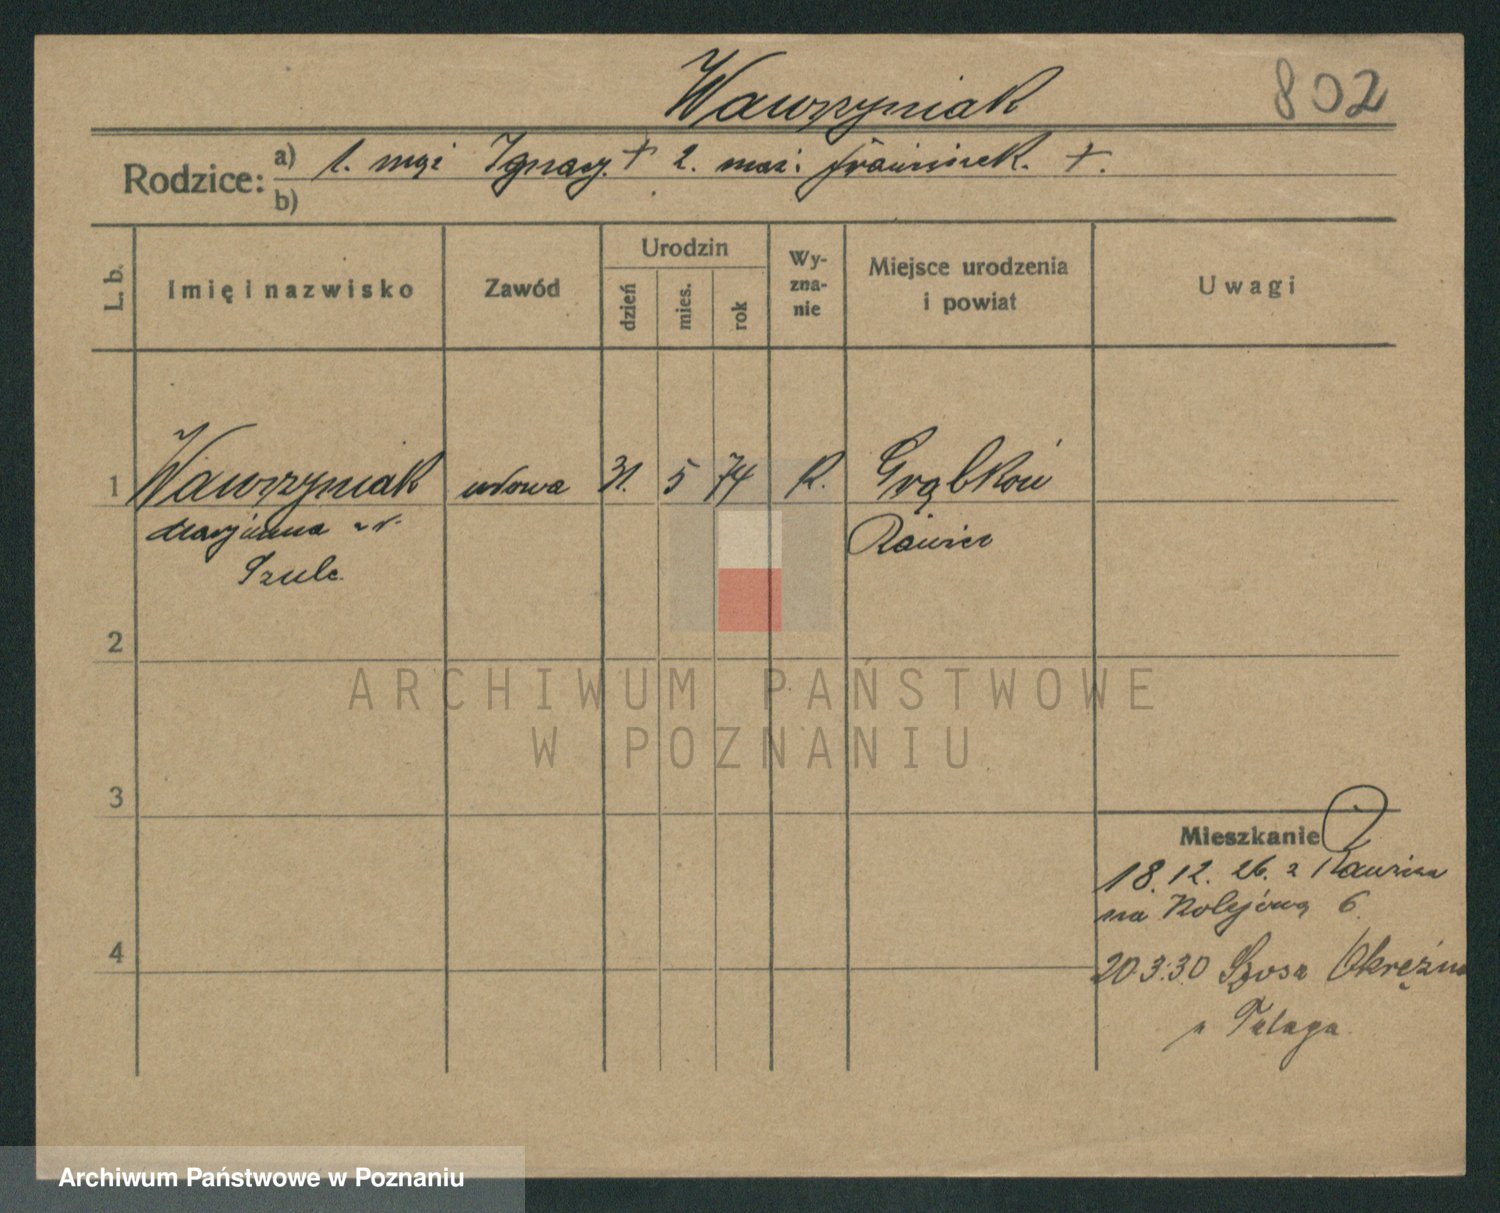 Wawrzyniak
802
Rodzice:
a) 1. mąż Ignacy. + 2. mąż. Franciszek. +.
b)
L. b.
Imię i nazwisko
Zawód
Urodzin
dzień
mies.
rok
Wy-
zna-
nie
Miejsce urodzenia
i powiat
Uwagi
1 Wawrzyniak wdowa 31. 5 74 R. Grąbków
Marjanna z d. Rawicz
Szulc
2
3
4
ARCHIWUM PAŃSTWOWE
W POZNANIU
Mieszkanie
18.12.26. z Rawicza
na Kolejową 6.
20.3.30 Szosa Okrężna
Archiwum Państwowe w Poznaniu